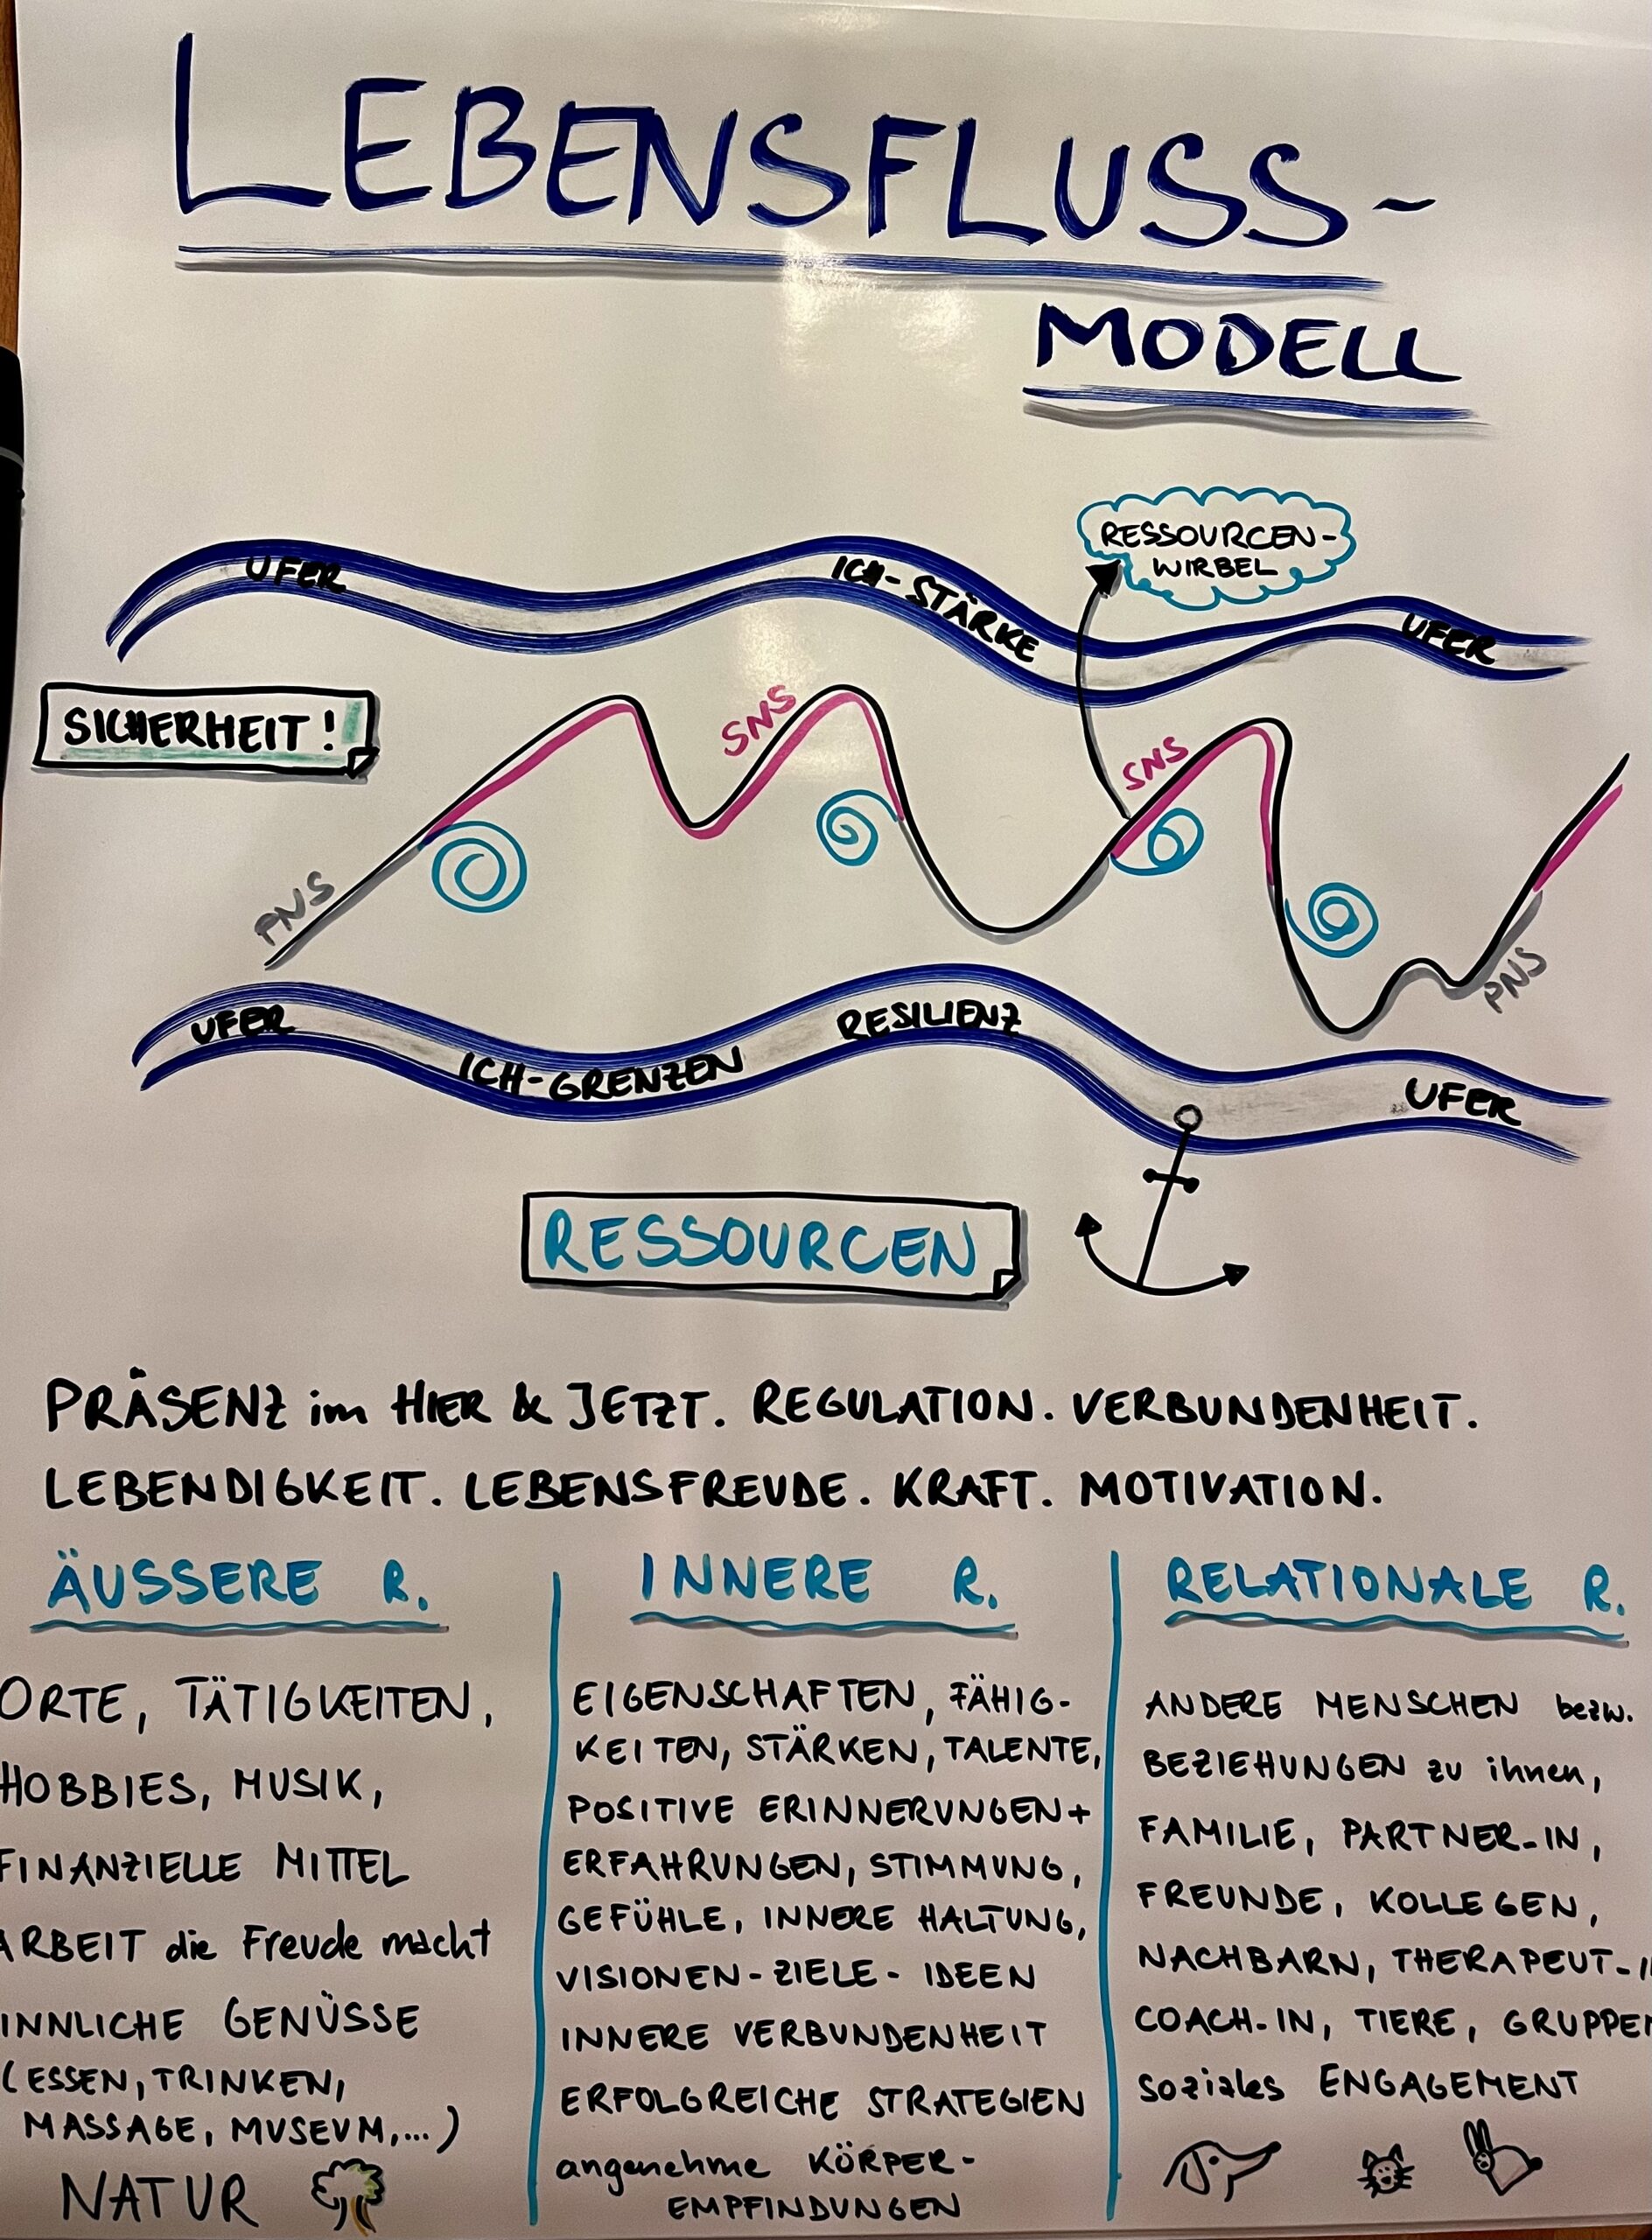 LEBENSFLUSS-
MODELL
RESSOURCEN-
WIRBEL
UFER
ICH-STÄRKE
UFER
SICHERHEIT!
SNS
SNS
PNS
PNS
UFER
ICH-GRENZEN
RESILIENZ
UFER
RESSOURCEN
PRÄSENZ im HIER & JETZT. REGULATION. VERBUNDENHEIT.
LEBENDIGKEIT. LEBENSFREUDE. KRAFT. MOTIVATION.
ÄUSSERE R.
ORTE, TÄTIGKEITEN,
HOBBIES, MUSIK,
FINANZIELLE MITTEL
ARBEIT die Freude macht
INNLICHE GENÜSSE
(ESSEN, TRINKEN,
MASSAGE, MUSEUM,...)
NATUR
INNERE R.
EIGENSCHAFTEN, FÄHIG-
KEITEN, STÄRKEN, TALENTE,
POSITIVE ERINNERUNGEN+
ERFAHRUNGEN, STIMMUNG,
GEFÜHLE, INNERE HALTUNG,
VISIONEN-ZIELE-IDEEN
INNERE VERBUNDENHEIT
ERFOLGREICHE STRATEGIEN
angenehme KÖRPER-
EMPFINDUNGEN
RELATIONALE R.
ANDERE MENSCHEN bezw.
BEZIEHUNGEN zu ihnen,
FAMILIE, PARTNER-IN,
FREUNDE, KOLLEGEN,
NACHBARN, THERAPEUT-I
COACH-IN, TIERE, GRUPPEN
soziales ENGAGEMENT